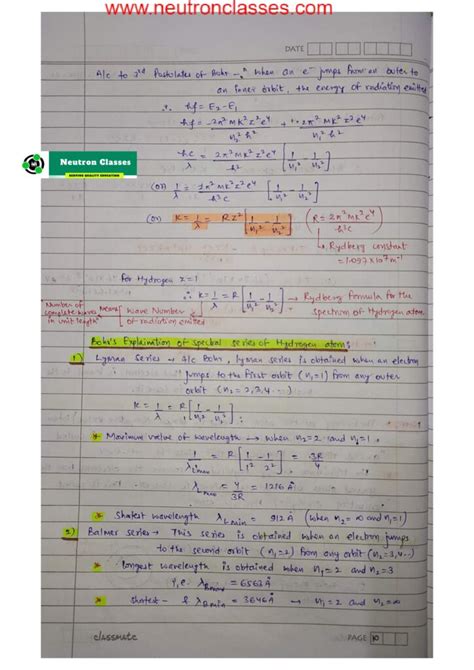 www.neutronclasses.com
DATE
A/c to 3rd Postulates of Bohr → "when an e⁻ jumps from an outer to
an inner orbit, the energy of radiation emitted
∴ hf = E₂-E₁
hf = -2π²mk²z²e⁴/n₂²h² + 2π²mk²z²e⁴/n₁²h²
Neutron Classes
hc/λ = 2π²mk²z²e⁴/h² [1/n₁² - 1/n₂²]
(or) 1/λ = 2π²mk²z²e⁴/h³c [1/n₁² - 1/n₂²]
(or) K = 1/λ = RZ² [1/n₁² - 1/n₂²] (R = 2π²mk²e⁴/h³c)
↳ Rydberg constant
= 1.097×10⁷m⁻¹
for Hydrogen z=1
∴ K = 1/λ = R [1/n₁² - 1/n₂²] → Rydberg formula for the
spectrum of Hydrogen atom.
"Number of
complete waves
in unit length" means [wave Number
of radiation emitted
Bohr's Explaination of spectral series of Hydrogen atom:
1) Lyman Series → A/c Bohr, lyman series is obtained when an electron
jumps to the first orbit (n₁=1) from any outer
orbit (n₂=2,3,4...)
K = 1/λ = R [1/n₁² - 1/n₂²];
* Maximum value of wavelength → when n₂=2 and n₁=1,
1/λLmax = R [1/1² - 1/2²] = 3R/4
λLmax = 4/3R = 1216 Å
* Shotest wavelength λLmin = 912 Å (when n₂=∞ and n₁=1)
2) Balmer series → This series is obtained when an electron jumps
to the second orbit (n₁=2) from any orbit (n₂=3,4...)
* longest wavelength is obtained when n₁=2 and n₂=3
i.e. λBmax = 6563 Å
* shotest - λBmin = 3646 Å → n₁=2 and n₂=∞
classmate
PAGE 10